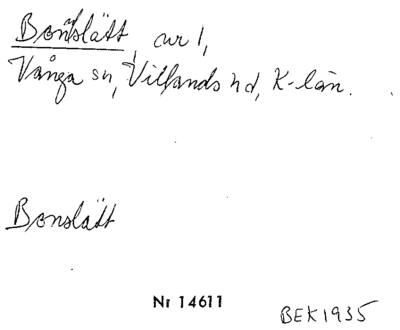 Bonslätt, avr 1,
Vånga sn, Villands hd, K-län.
Bonslätt
Nr 14611
BEK 1935